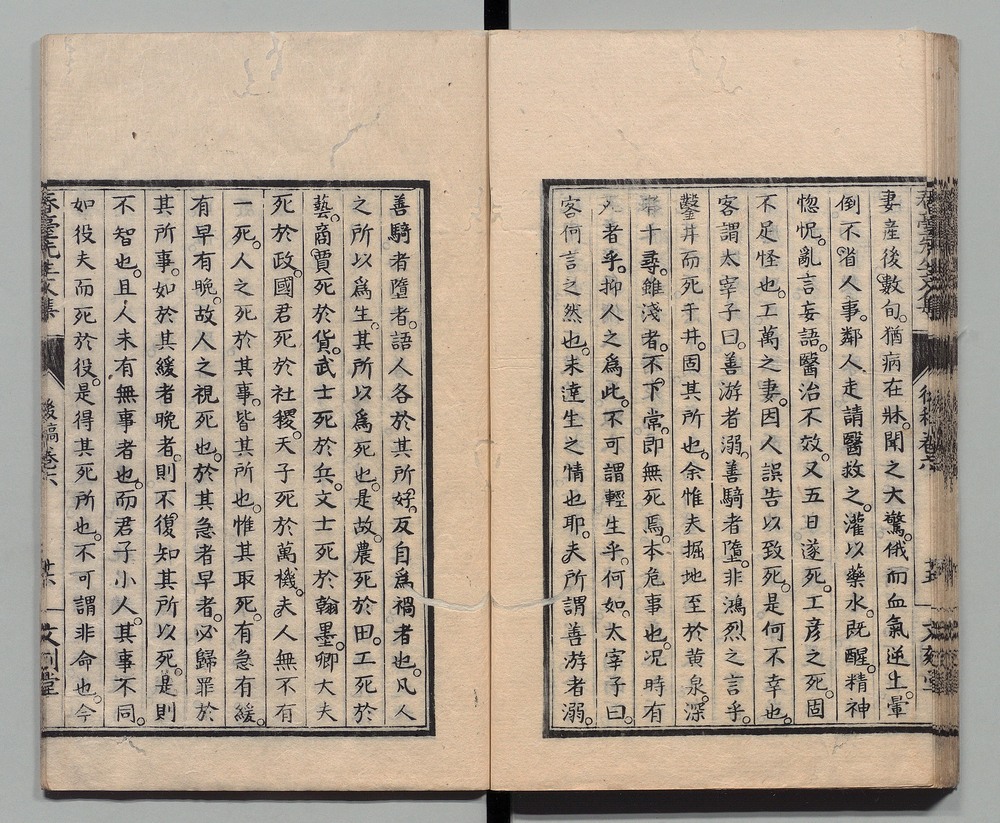 妻産後數旬。猶病在牀。聞之大驚。俄而血氣逆上。暈
倒不省人事。鄰人走請醫救之。灌以藥水。既醒。精神
惚怳。亂言妄語。醫治不效。又五日遂死。工彦之死。固
不足怪也。工萬之妻。因人誤告以致死。是何不幸也。
客謂太宰子曰。善游者溺。善騎者墮。非鴻烈之言乎。
鑿井而死于井。固其所也。余惟夫掘地至於黄泉。深
十尋。雖淺者。不下常。即無死焉。本危事也。况時有
死者乎。抑人之爲此。不可謂輕生乎。何如。太宰子曰。
客何言之然也。未達生之情也耶。夫所謂善游者溺。
善騎者墮者。語人各於其所好。反自爲禍者也。凡人
之所以爲生。其所以爲死也。是故農死於田。工死於
藝。商賈死於貨。武士死於兵。文士死於翰墨。卿大夫
死於政。國君死於社稷。天子死於萬機。夫人無不有
一死。人之死於其事。皆其所也。惟其取死。有急有緩。
有早有晩。故人之視死也。於其急者早者。必歸罪於
其所事。如於其緩者晩者。則不復知其所以死。是則
不智也。且人未有無事者也。而君子小人。其事不同。
如役夫而死於役。是得其死所也。不可謂非命也。今
春臺先生文集 後稿卷六